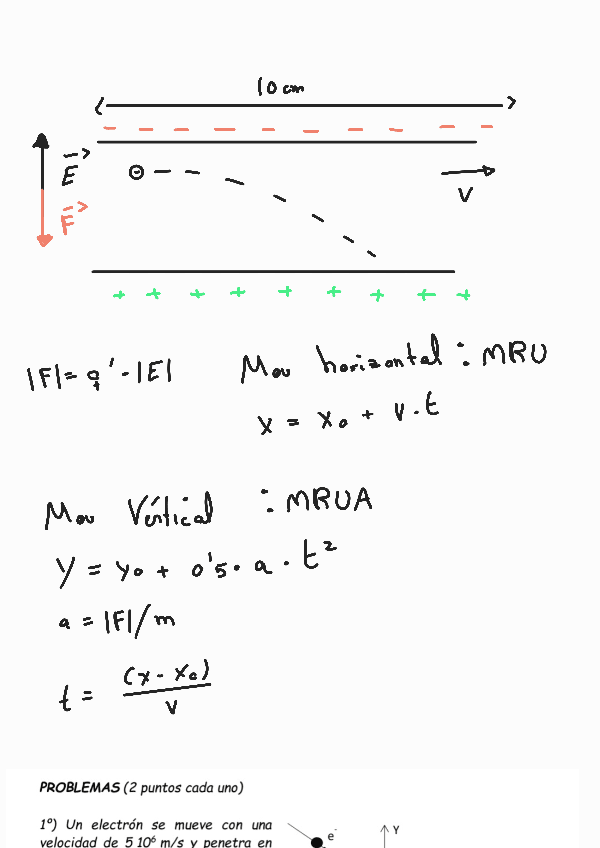 10 cm
- - - - - - - - - -
E
F
v
+ + + + + + + + +
|F| = q' · |E|
Mov horizontal : MRU
x = x₀ + v · t
Mov Vértical : MRUA
y = y₀ + 0'5 · a · t²
a = |F|/m
t = (x - x₀)
v
PROBLEMAS (2 puntos cada uno)
1º) Un electrón se mueve con una
velocidad de 5 10⁶ m/s y penetra en
e⁻
Y